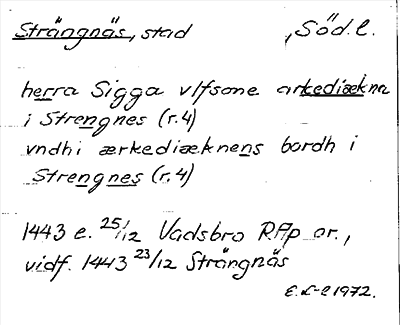 Strängnäs, stad ,Söd.l.
herra Sigga vlfsone arkediækne
i Strengnes (r.4)
vndhi ærkediæknens bordh i
Strengnes (r.4)
1443 e. 25/12 Vadsbro RAp or.,
vidf. 1443 23/12 Strängnäs
E.L-e 1972.